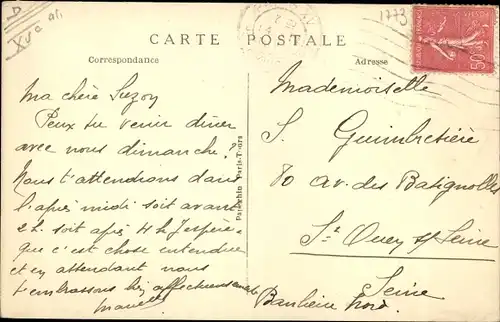 D
XVe arr
1773
CARTE POSTALE
Correspondance
Adresse
50c
Ma chère Suzon
Peux tu venir dîner
avec nous dimanche ?
Nous t'attendrons dans
l'après midi soit avant
2 h. soit après 4 h J'espère
que c'est chose entendue
et en attendant nous
t'embrassons bien affectueusement
Mademoiselle
S. Guimbretière
80 av. des Batignolles
St Ouen s/ Seine
Seine
Banlieue Nord.